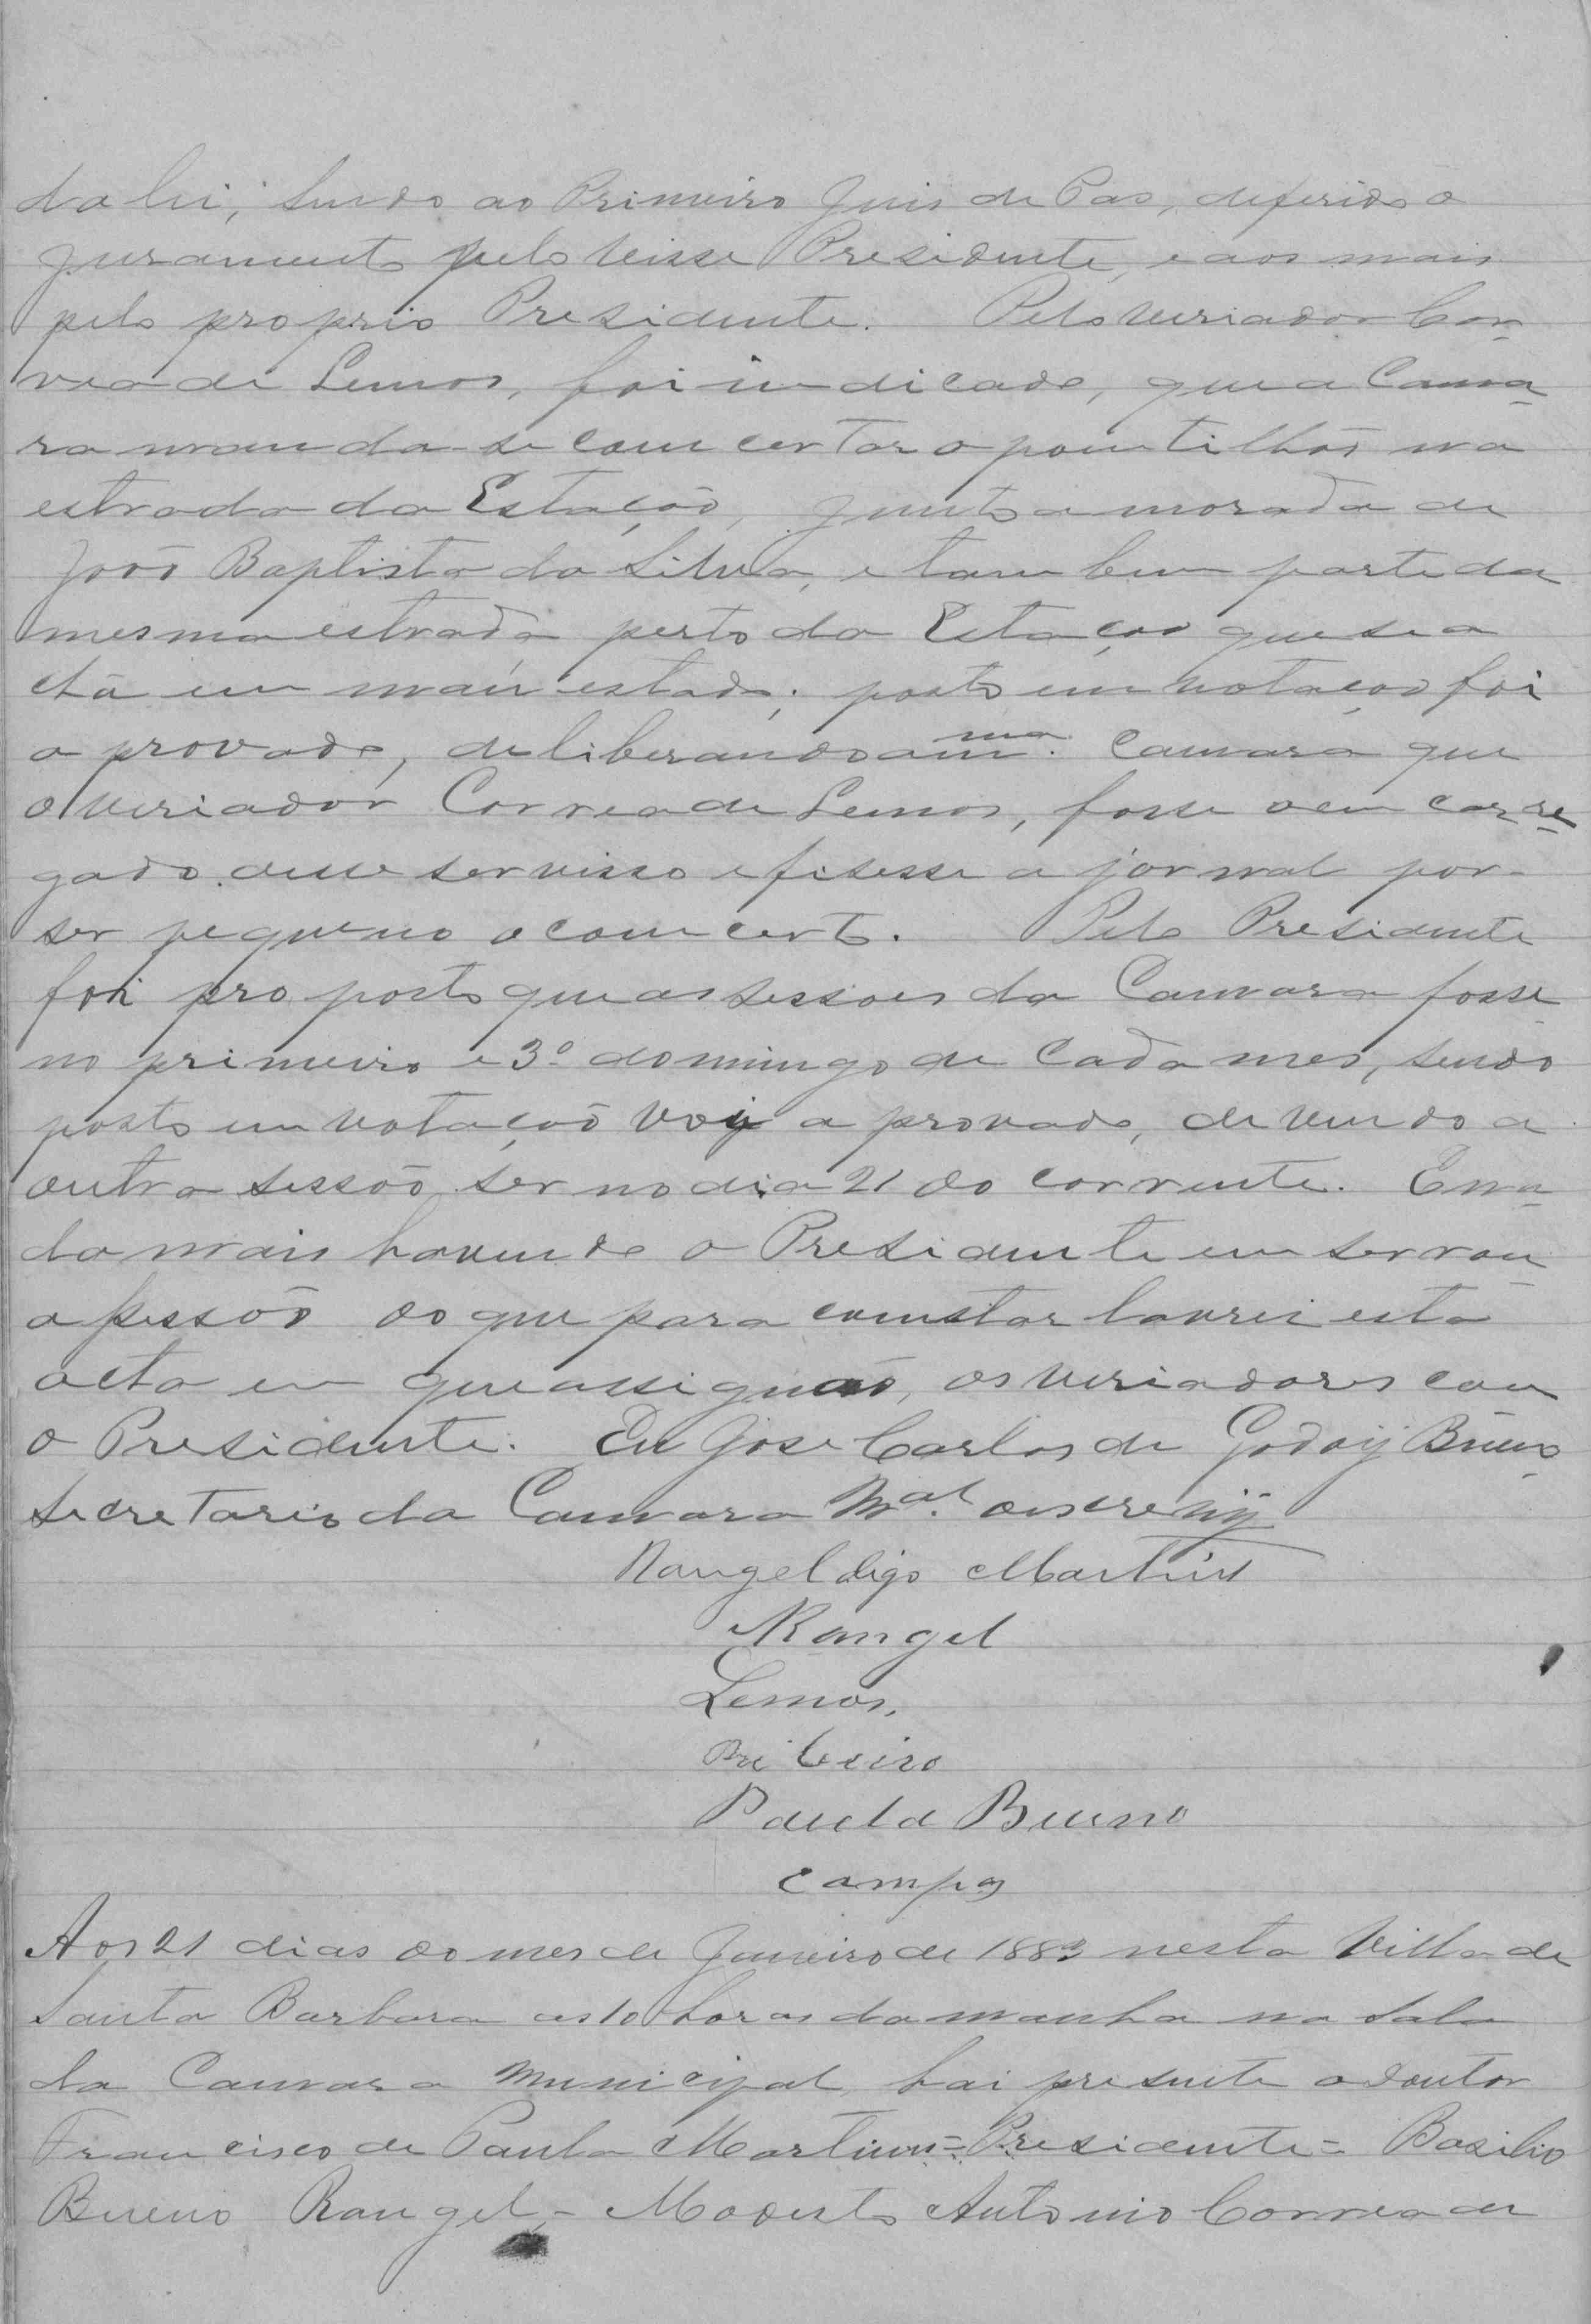 da lei, sendo ao Primeiro Juis de Pas, deferido o
juramento pelo Visse Presidente, e aos mais
pelo proprio Presidente. Pelo veriador Cor-
rea de Lemos, foi indicado, que a Cama-
ra manda-se comcertar o pontilhão na
estrada da Estação, junto a morada de
João Baptista da Silva, e tambem parte da
mesma estrada perto da Estação que se a
chа em máu estado; posto em votação foi
aprovado, deliberando a mma. Camara que
o veriador Correa de Lemos, fosse o encarre-
gado desse servisso e fisesse a jornal por-
ser pequeno o comcerto. Pelo Presidente
foi proposto que as sessões da Camara fosse
no primeiro e 3º domingo de cada mes, sendo
posto em votação voy aprovado, devendo a
outra sessão ser no dia 21 do corrente. E na-
da mais havendo o Presidente enserrou
a sessão do que para comstar lavrei esta
acta em que assignão, os veriadores com
o Presidente. Eu Jose Carlos de Godoy Bueno
Secretario da Camara Mal. o escrevy
Rangel digo Martins
Rangel
Lemos.
Ribeiro
Paula Bueno
Campos
Aos 21 dias do mes de Janeiro de 1883 nesta Villa de
Santa Barbara as 10 horas da manha na sala
da Camara Municipal, hai presente o doutor
Francisco de Paula Martins = Presidente = Basilio
Bueno Rangel, - Modesto Antonio Correa de